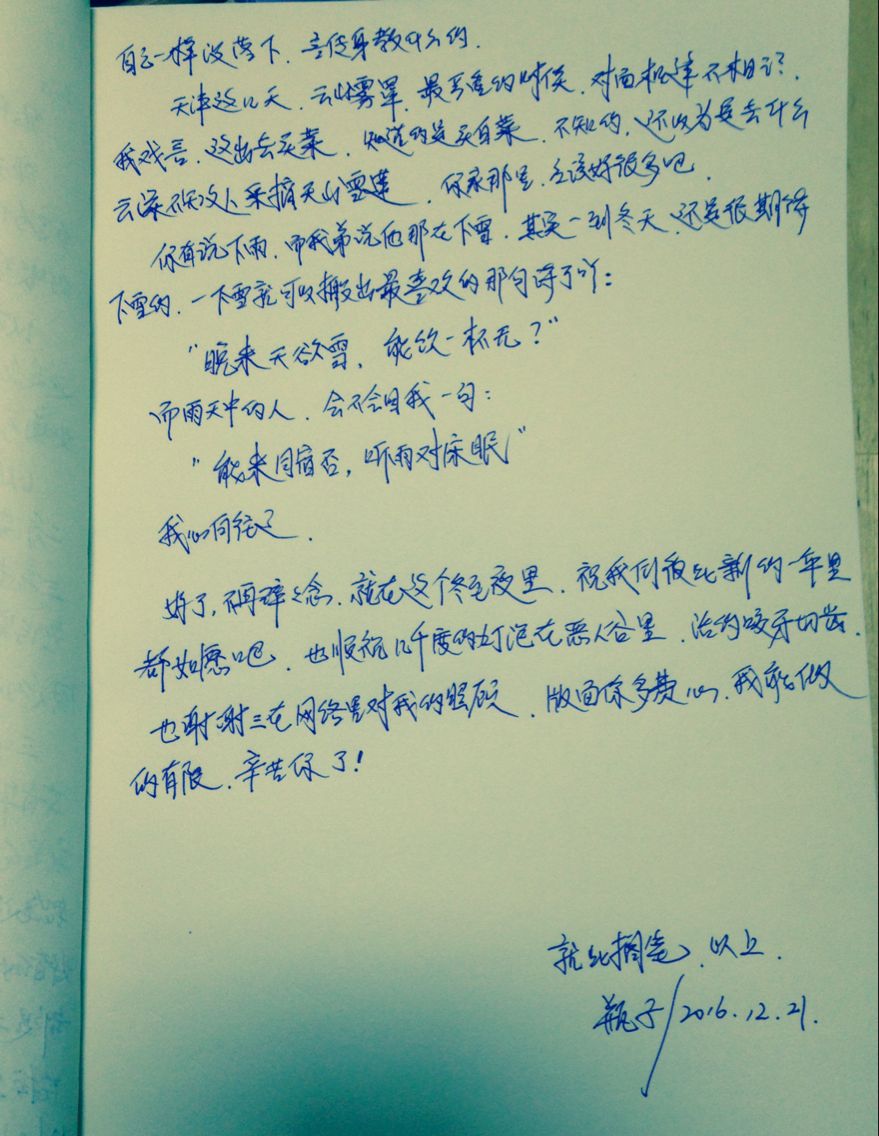 自己一样没落下，言传身教什么的．
天津这几天，云山雾罩，最严重的时候，对面相逢不相识．
我戏言，这出去买菜，知道的是买白菜，不知的，还以为是去什么
云深不知处上采摘天山雪莲，你家那里，应该好很多吧．
你有说下雨，而我弟说他那在下雪，其实一到冬天，还是很期待
下雪的，一下雪就可以搬出最喜欢的那句诗了吖：
“晚来天欲雪，能饮一杯无？”
而雨天中的人，会不会回我一句：
“能来同宿否，听雨对床眠”
我心向往之．
好了，不再碎碎念，就在这个冬至夜里，祝我们彼此新的一年里
都如愿吧，也顺祝几千度的灯泡在恶人谷里，治的咬牙切齿．
也谢谢三在网络里对我的照顾，版面你多费心，我能做
的有限，辛苦你了！
就此搁笔，以上．
瓶子/2016.12.21.